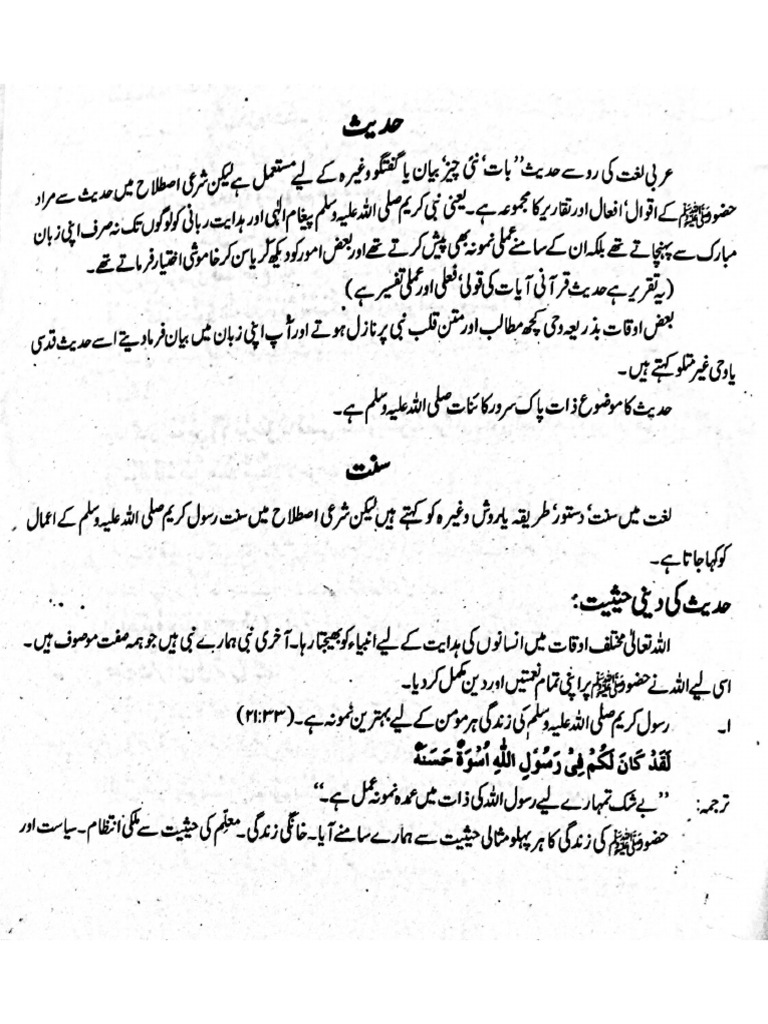 حدیث
عربی لغت کی رو سے حدیث ”بات‘ نئی چیز‘ بیان یا گفتگو وغیرہ کے لیے مستعمل ہے لیکن شرعی اصطلاح میں حدیث سے مراد
حضورﷺ کے اقوال‘ افعال اور تقاریر کا مجموعہ ہے۔ یعنی نبی کریم صلی اللہ علیہ وسلم پیغام الٰہی اور ہدایت ربانی کو لوگوں تک نہ صرف اپنی زبان
مبارک سے پہنچاتے تھے بلکہ ان کے سامنے عملی نمونہ بھی پیش کرتے تھے اور بعض امور کو دیکھ کر یا سن کر خاموشی اختیار فرماتے تھے۔
(یہ تقریر ہے حدیث قرآنی آیات کی قولی‘ فعلی اور عملی تفسیر ہے)
بعض اوقات بذریعہ وحی کچھ مطالب اور متن قلب نبی پر نازل ہوتے اور آپ اپنی زبان میں بیان فرما دیتے اسے حدیث قدسی
یا وحی غیر متلو کہتے ہیں۔
حدیث کا موضوع ذات پاک سرور کائنات صلی اللہ علیہ وسلم ہے۔
سنت
لغت میں سنت‘ دستور‘ طریقہ یا روش وغیرہ کو کہتے ہیں لیکن شرعی اصطلاح میں سنت رسول کریم صلی اللہ علیہ وسلم کے اعمال
کو کہا جاتا ہے۔
حدیث کی دینی حیثیت:
اللہ تعالیٰ مختلف اوقات میں انسانوں کی ہدایت کے لیے انبیاء کو بھیجتا رہا۔ آخری نبی ہمارے نبی ہیں جو ہمہ صفت موصوف ہیں۔
اسی لیے اللہ نے حضورﷺ پر اپنی تمام نعمتیں اور دین مکمل کر دیا۔
۱۔ رسول کریم صلی اللہ علیہ وسلم کی زندگی ہر مومن کے لیے بہترین نمونہ ہے۔ (۲۱:۳۳)
لَقَدْ كَانَ لَكُمْ فِيْ رَسُوْلِ اللّٰهِ اُسْوَةٌ حَسَنَةٌ
ترجمہ: ”بے شک تمہارے لیے رسول اللہ کی ذات میں عمدہ نمونہ عمل ہے۔“
حضورﷺ کی زندگی کا ہر پہلو مثالی حیثیت سے ہمارے سامنے آیا۔ خانگی زندگی۔ معلم کی حیثیت سے ملکی انتظام۔ سیاست اور